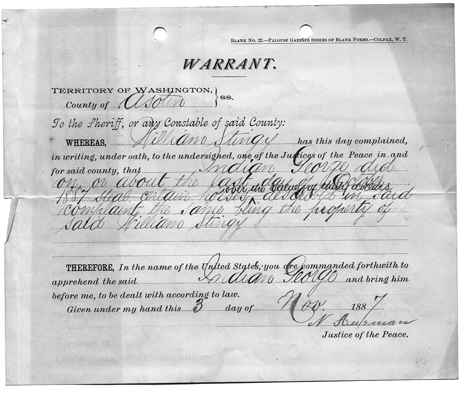 BLANK No. 22.—PALOUSE GAZETTE SERIES OF BLANK FORMS.—COLFAX, W. T.
WARRANT.
TERRITORY OF WASHINGTON,
County of Asotin } ss.
To the Sheriff, or any Constable of said County:
WHEREAS, William Stingy has this day complained,
in writing, under oath, to the undersigned, one of the Justices of the Peace in and
for said county, that Indian George did
on or about the day of October
of the value of dollars,
1887 certain described in said
complaint, the same being the property of
said William Stingy
THEREFORE, In the name of the United States, you are commanded forthwith to
apprehend the said Indian George and bring him
before me, to be dealt with according to law.
Given under my hand this 3 day of Nov. 1887
Justice of the Peace.